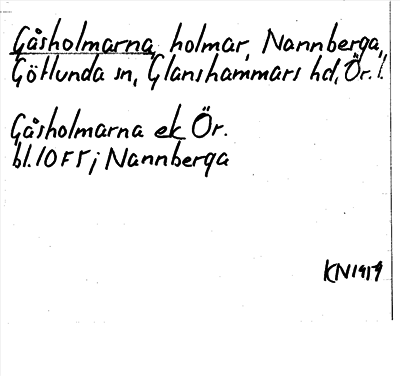 Gåsholmarna, holmar, Nannberga,
Götlunda sn, Glanshammars hd, Ör. l.
Gåsholmarna ek Ör.
bl. 10 F 5 j Nannberga